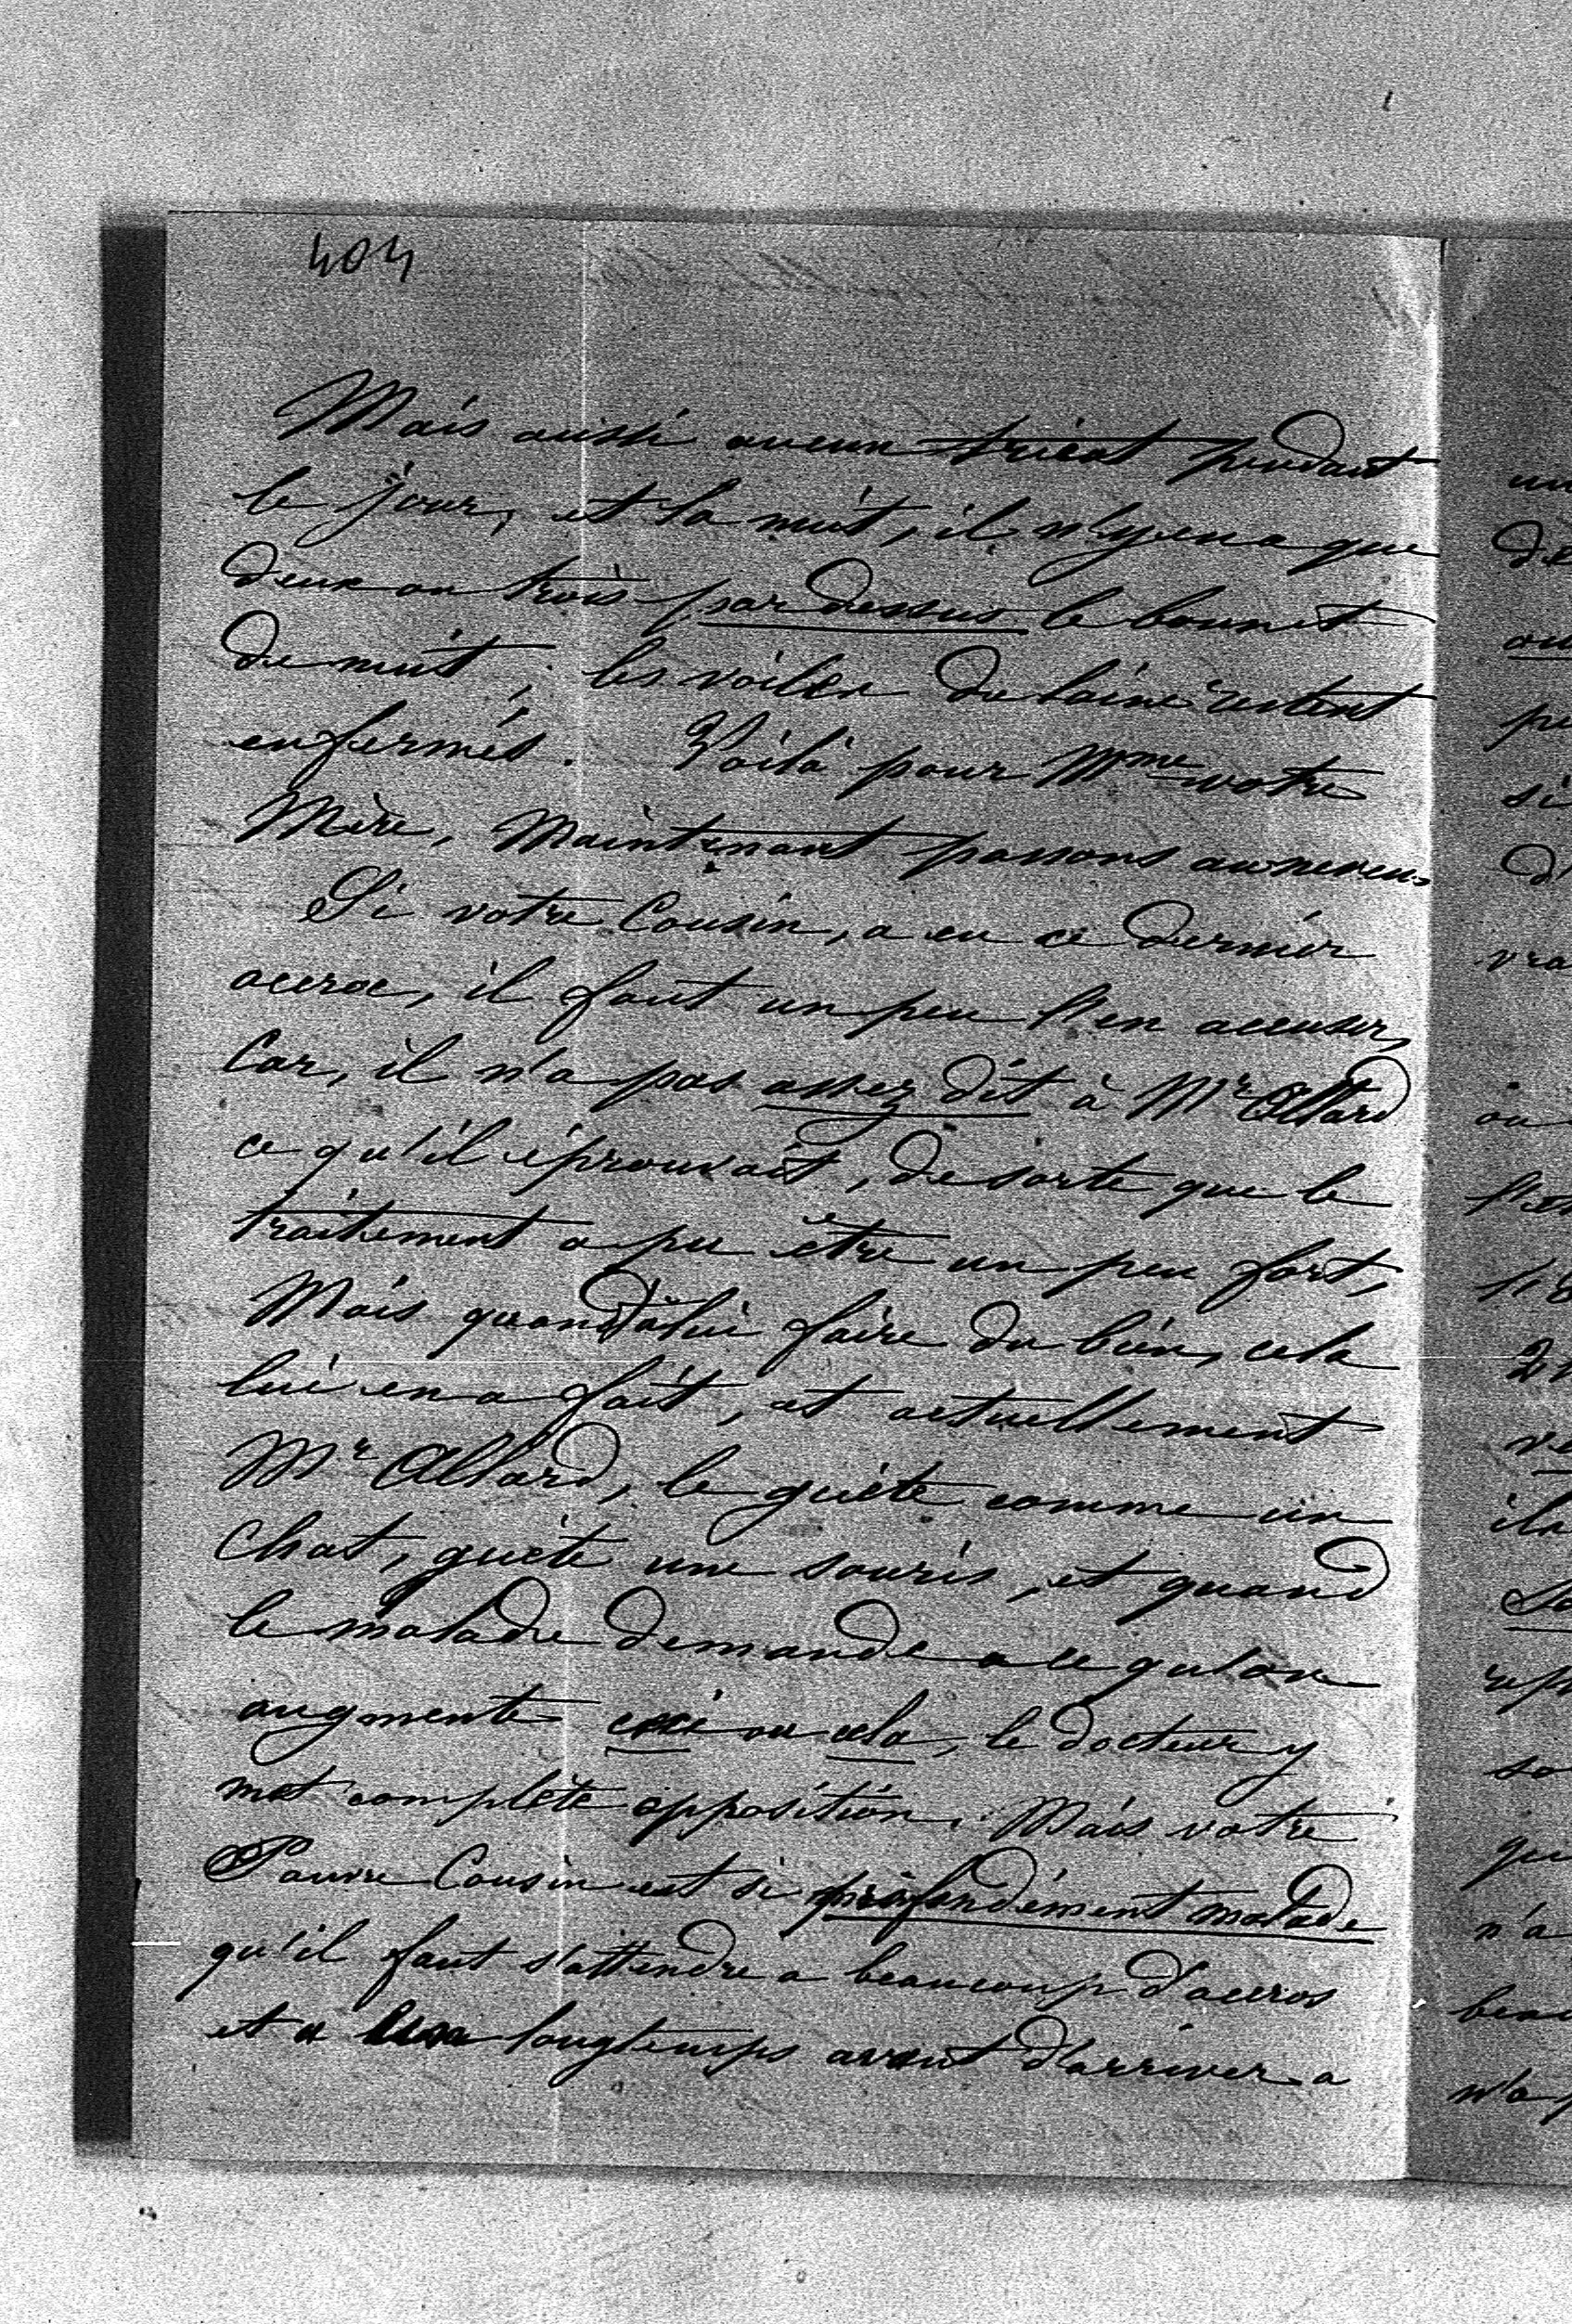 404
Mais aussi aucun tricot pendant
le jour, et la nuit, il n'y en a que
deux ou trois par dessus le bonnet
de nuit; les voiles de laine restent
enfermés. Voilà pour Mme votre
Mère, Maintenant passons au neveu.
Si votre Cousin, a eu ce dernier
accroc, il faut un peu l'en accuser,
Car, il n'a pas assez dit à Mr Allard
ce qu'il éprouvait, de sorte que le
traitement a pu être un peu fort,
Mais quand à lui faire du bien, cela
lui en a fait, et actuellement
Mr Allard, le guète comme un
Chat, guète une souris, et quand
le malade demande a ce qu'on
augmente ceci ou cela, le docteur y
met complète opposition. Mais votre
Pauvre Cousin est si profondément malade
qu'il faut s'attendre a beaucoup d'accros
et a longtemps avant d'arriver a